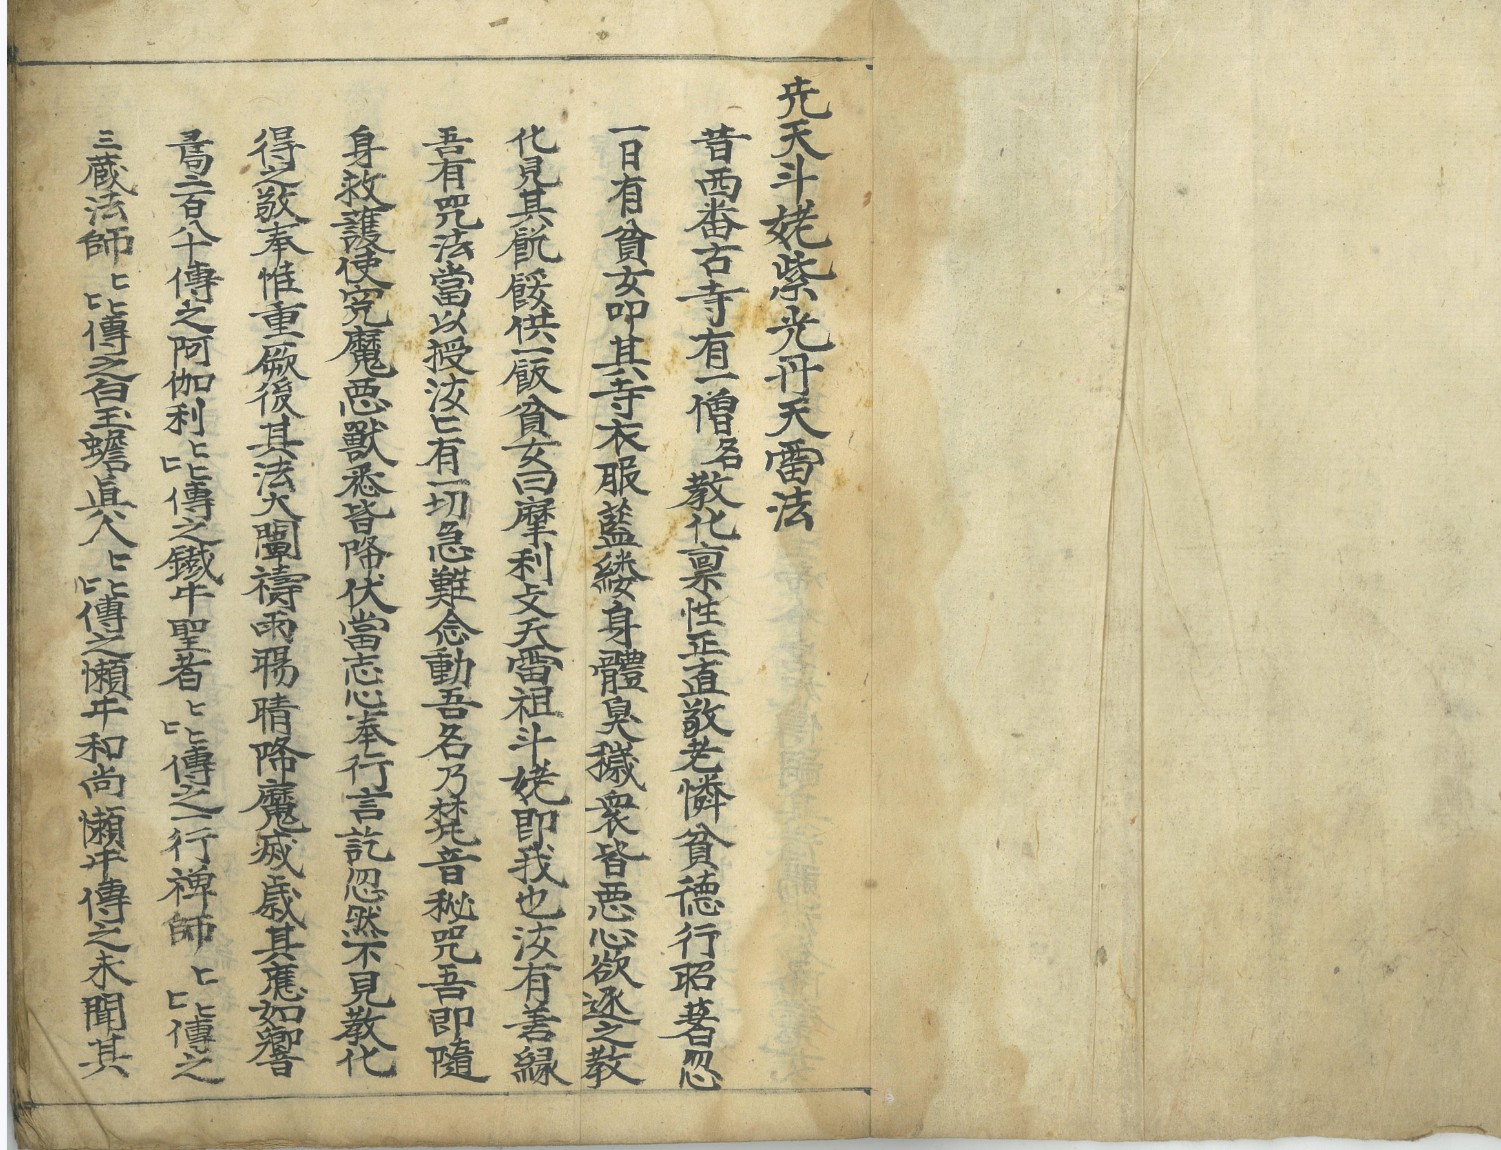 先天斗姥紫光丹天雷法
昔西畨古寺有一僧名教化禀性正直敬老憐貧德行昭著忽
一日有貧女叩其寺衣服藍縷身體臭穢衆皆惡心欲逐之教
化見其飢餒供一飯貧女曰摩利攴天雷祖斗姥即我也汝有善緣
吾有咒法當以授汝匕有一切急難念動吾名乃梵音秘咒吾即隨
身救護使寃魔惡獸悉皆降伏當志心奉行言訖忽然不見教化
得之敬奉惟重厥後其法大闡禱雨暘晴降魔滅其應如響
二百八十傳之阿伽利匕匕匕傳之鐵牛聖者匕匕匕傳之一行禅師匕匕匕傳之
三藏法師匕匕匕傳之白玉蟾眞人匕匕匕傳之懶牛和尚懶牛傳之未聞其